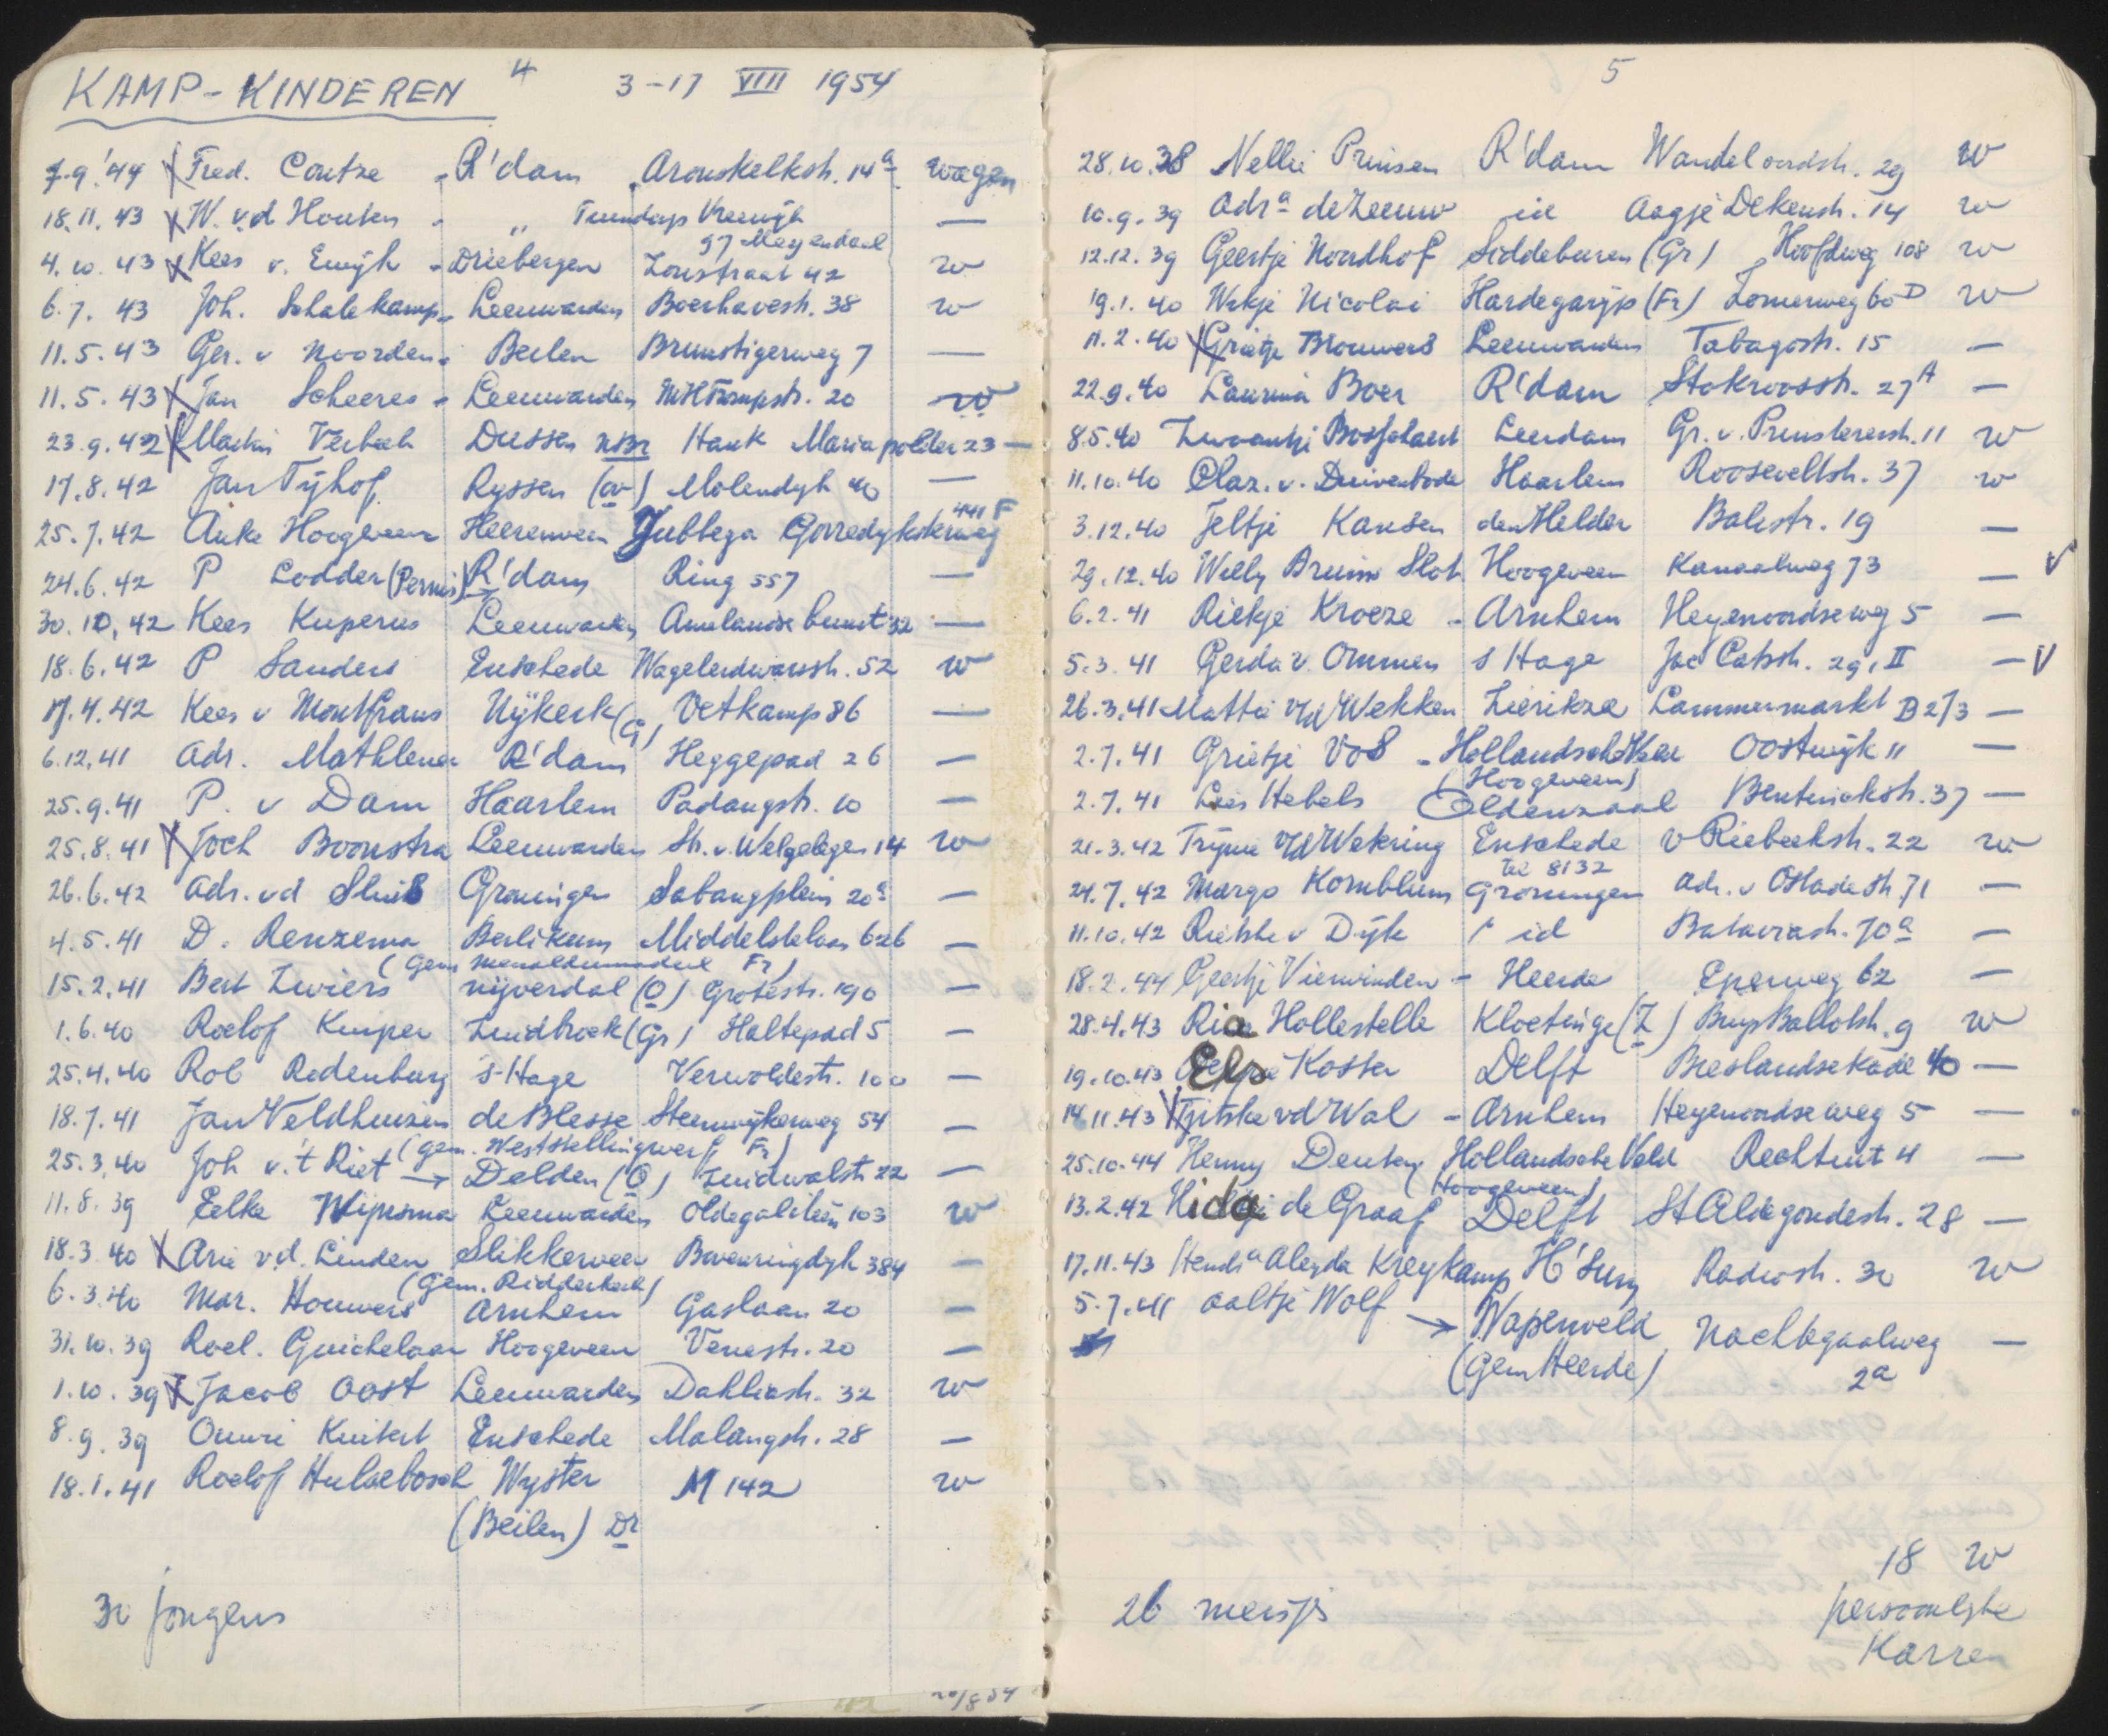 4
KAMP-KINDEREN 3-17 VIII 1954
7.9.'44 X Fred. Coutze - R'dam Aronskelkstr. 14a wagen
18.11.43 X W. v.d Houten - ,, Vreewijk —
97 Meyendaal
4.10.43 X Kees v. Ewijk - Driebergen Loustraat 42 w
6.7.43 Joh. Schalekamp - Leeuwarden Boerhavestr. 38 w
11.5.43 Ger. v Noorden. Beilen Brunstigerweg 7 —
11.5.43 X Jan Scheeres - Leeuwarden MHTrompstr. 20 w
23.9.42 X Martin Verbeek Dussen NBr Hank Mariapolder 23 —
17.8.42 Jan Tijhof Ryssen (ov) Molendijk 40 —
441 F
25.7.42 Auke Hoogeveen Heerenveen Jubbega Gorredijksterweg
24.6.42 P Lodder (Pernis) R'dam Ring 557 —
30.10.42 Kees Kuperus Leeuwarden Amelandse buurt 32 —
18.6.42 P Sanders Enschede Wagelerdwarsstr. 52 w
17.4.42 Kees v Montfrans Nijkerk (G) Vetkamp 86 —
6.12.41 Adr. Mathlener R'dam Heggepad 26 —
25.9.41 P. v Dam Haarlem Padangstr. 10 —
25.8.41 X Joch Boonstra Leeuwarden Str. v. Welgelegen 14 w
26.6.42 Adr. vd Sluis Groningen Sabangplein 20a —
4.5.41 D. Renzema Berlikum Middelstelaan 626 —
(Gem Menaldumadeel Fr)
15.2.41 Bert Zwiers Nijverdal (O) Grotestr. 190 —
1.6.40 Roelof Kuiper Zuidbroek (Gr) Haltepad 5 —
25.4.40 Rob Rodenburg s-Hage Verwoldestr. 100 —
18.7.41 Jan Veldhuizen de Blesse Steenwijkerweg 54 —
(gem. Weststellingwerf Fr)
25.3.40 Joh v.'t Riet → Delden (O) Zuidwalstr. 22 —
11.8.39 Eelke Wijpsma Leeuwarden Oldegalileën 103 w
18.3.40 X Arie v.d. Linden Slikkerveer Benenringdijk 384 —
(Gem. Ridderkerk)
6.3.40 Mar. Houwers Arnhem Gaslaan 20 —
31.10.39 Roel. Guichelaar Hoogeveen Venestr. 20 —
1.10.39 X Jacob Oost Leeuwarden Dahliastr. 32 w
8.9.39 Kuikert Enschede Malangstr. 28 —
18.1.41 Roelof Hulsebosch Wijster M 142 w
(Beilen) Dr
30 jongens
20/8 54
5
28.10.38 Nellie Prinsen R'dam Wandeloordstr. 29 w
10.9.39 Adra de Zeeuw id Aagje Dekenstr. 14 w
12.12.39 Geertje Noordhof Siddeburen (Gr) Hoofdweg 108 w
19.1.40 Wikje Nicolai Hardegarijp (Fr) Zomerweg 60D w
11.2.40 X Grietje Brouwers Leeuwarden Tabagostr. 15 —
22.9.40 Laurina Boer R'dam Stokroosstr. 27A —
8.5.40 Zwaantje Bosschaert Leerdam Gr. v. Prinstererstr. 11 w
11.10.40 Claz. v. Duivenbode Haarlem Rooseveltstr. 37 w
3.12.40 Jeltje Kansen den Helder Balistr. 19 —
29.12.40 Willy Bruins Slot Hoogeveen Kanaalweg 73 — V
6.2.41 Riekje Kroeze - Arnhem Heyenoordseweg 5 —
5.3.41 Gerda v. Ommen s Hage Jac Catsstr. 29, II — V
26.3.41 Mattie v/d Wekken Zierikzee Lammermarkt B 273 —
2.7.41 Grietje Vos - Hollandscheveld Oostwijk 11 —
(Hoogeveen)
2.7.41 Lies Hebels Oldenzaal Bentinckstr. 37 —
21.3.42 Trijnie v/d Wekering Enschede v Riebeekstr. 22 w
tel 8132
24.7.42 Margo Kornblum Groningen Adr. v Ostadestr. 71 —
11.10.42 Rietske v Dijk id Bataviastr. 70a —
18.2.44 Geertje Vierwinden - Heerde Eperweg 62 —
28.4.43 Ria Hollestelle Kloetinge (Z) Buys Ballotstr. 9 w
19.10.43 Els Koster Delft Breslandsekade 40 —
14.11.43 X Tjitske vd Wal - Arnhem Heyenoordseweg 5 —
25.10.44 Henny Deuten Hollandsche Veld Rechtuit 4 —
(Hoogeveen)
13.2.42 Hida de Graaf Delft St Aldegondestr. 28 —
17.11.43 Hendra Aleyda Kreykamp H'sum Radiostr. 30 w
5.7.41 Aaltje Wolf → Wapenveld Nachtegaalweg —
(Gem Heerde) 2a
18 w
26 meisjes persoonlijke
Karren